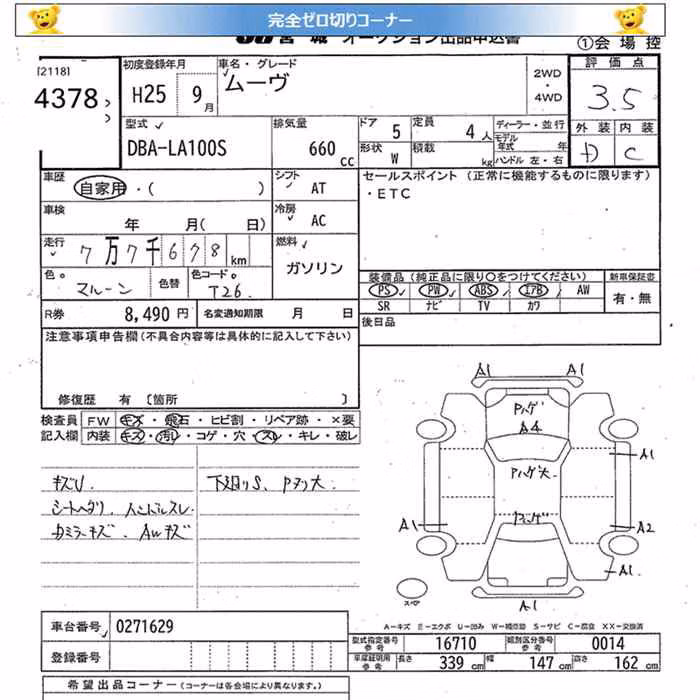 完全ゼロ切りコーナー
JU宮城 オークション出品申込書
①会場控
[2118]
4378
初度登録年月
H25 9月
車名・グレード
ムーヴ
2WD
・
4WD
評価点
3.5
外装 内装
D C
型式
DBA-LA100S
排気量
660 cc
ドア 5
定員 4人
ディーラー・並行
形状 W
積載 kg
モデル年式 年
ハンドル 左・右
車歴
自家用・( )
シフト
AT
セールスポイント (正常に機能するものに限ります)
・ETC
車検
年 月( 日)
冷房
AC
走行
7万7千678km
燃料
ガソリン
色。
マルーン
色替
色コード。
T26
装備品(純正品に限り○をつけてください)
PS PW ABS エアB AW
SR ナビ TV カワ
新車保証書
有・無
R券 8,490円
名変通知期限 月 日
後日品
注意事項申告欄(不具合内容等は具体的に記入して下さい)
修復歴 有 〔箇所 〕
検査員 FW キズ・飛石・ヒビ割・リペア跡・×要
記入欄 内装 キズ・汚れ・コゲ・穴・スレ・キレ・破レ
キズU
シートヘタリ ハンドルスレ
カミラーキズ AWキズ
下廻りS、Pヌリ大
A1 A1
Pハゲ
A4
Pハゲ大
A1
Pハゲ
A1 A2
A1
A1
スペア
A-キズ E-エクボ U-凹み W-補修跡 S-サビ C-腐食 XX-交換済
車台番号 0271629
登録番号
型式指定番号 参考 16710
類別区分番号 参考 0014
車庫証明用 参考 長さ 339cm 幅 147cm 高さ 162cm
希望出品コーナー (コーナーは各会場により異なります。)